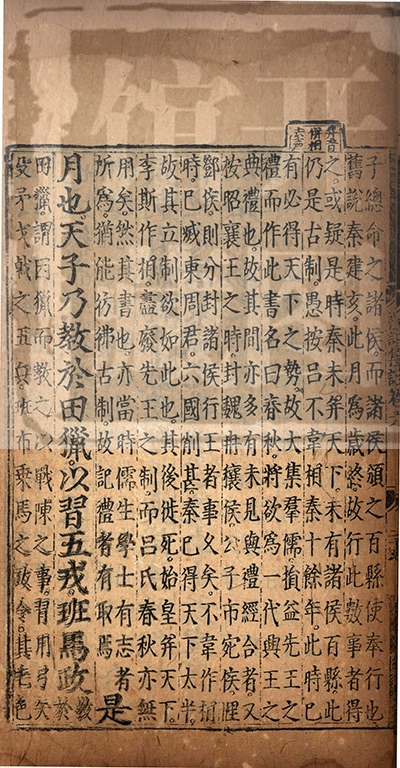 并音
併相
去声
子總命之諸侯。而諸侯頒之百縣使奉行也
舊說秦建亥。此月爲歲終故行此數事者得
之。或疑是時秦未并天下。未有諸侯百縣。此
仍是古制。愚按呂不韋相秦十餘年。此時已
有必得天下之勢。故大集羣儒。損益先王之
禮而作此書。名曰春秋。將欲爲一代興王之
典禮也。故其間亦多有未見與禮經合者。又
按昭襄王之時。封魏冉穰侯。公子市宛侯悝
鄧侯。則分封諸侯。行王者事久矣。不韋作相
時。已滅東周君。六國削甚。秦已得天下太半。
故其立制欲如此也。其後徙死。始皇并天下。
李斯作相。盡廢先王之制。而呂氏春秋亦無
用矣。然其書也。亦當時儒生學士有志者
所爲。猶能彷彿古制。故記禮者有取焉 是
月也。天子乃教於田獵。以習五戎。班馬政 教於
田獵。謂因獵而教之以戰陳之事。習用弓矢
殳矛戈戟之五兵。班布乘馬之政令。其毛色